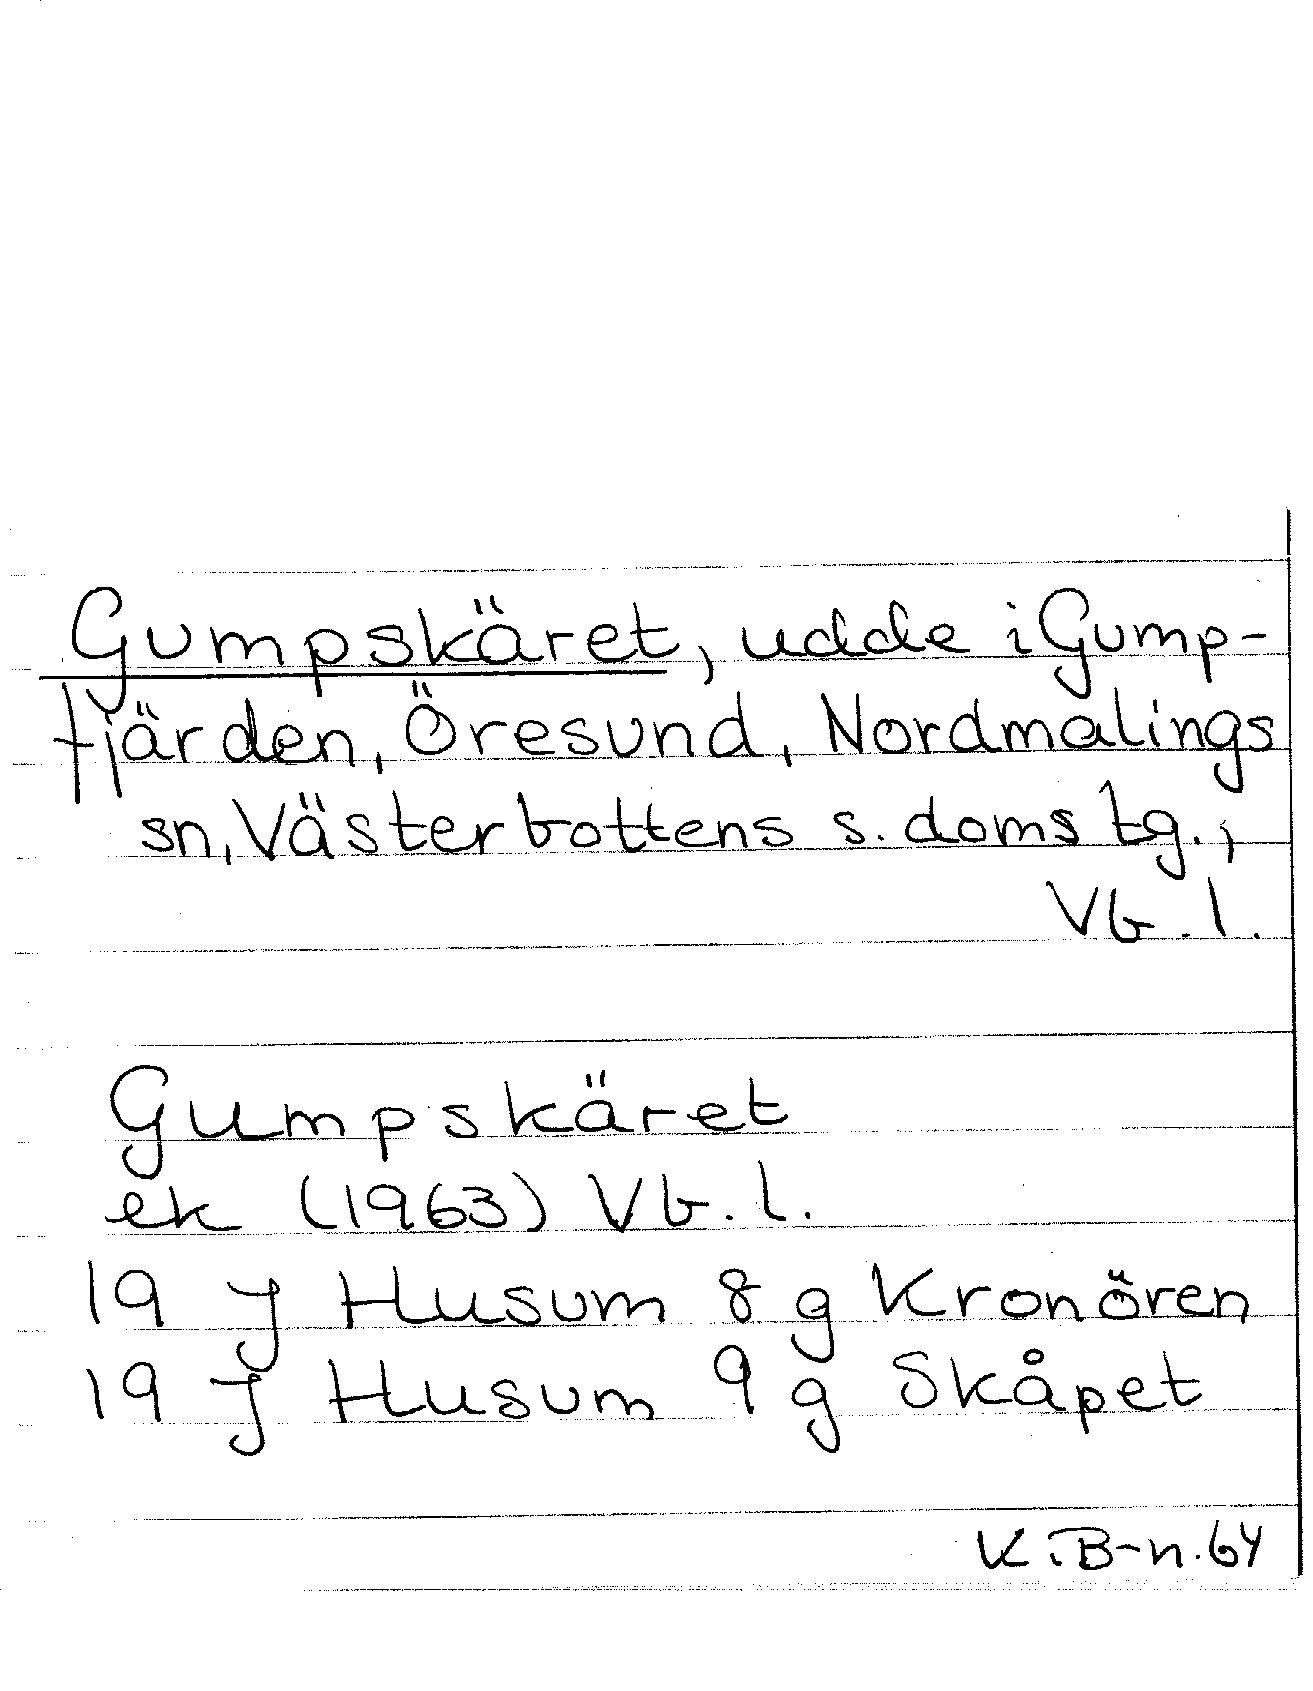 Gumpskäret, udde i Gump-
fjärden, Öresund, Nordmalings
sn, Västerbottens s. doms tg.,
Vb. l.
Gumpskäret
ek (1963) Vb. l.
19 J Husum 8 g Kronören
19 J Husum 9 g Skåpet
K. B-n. 64